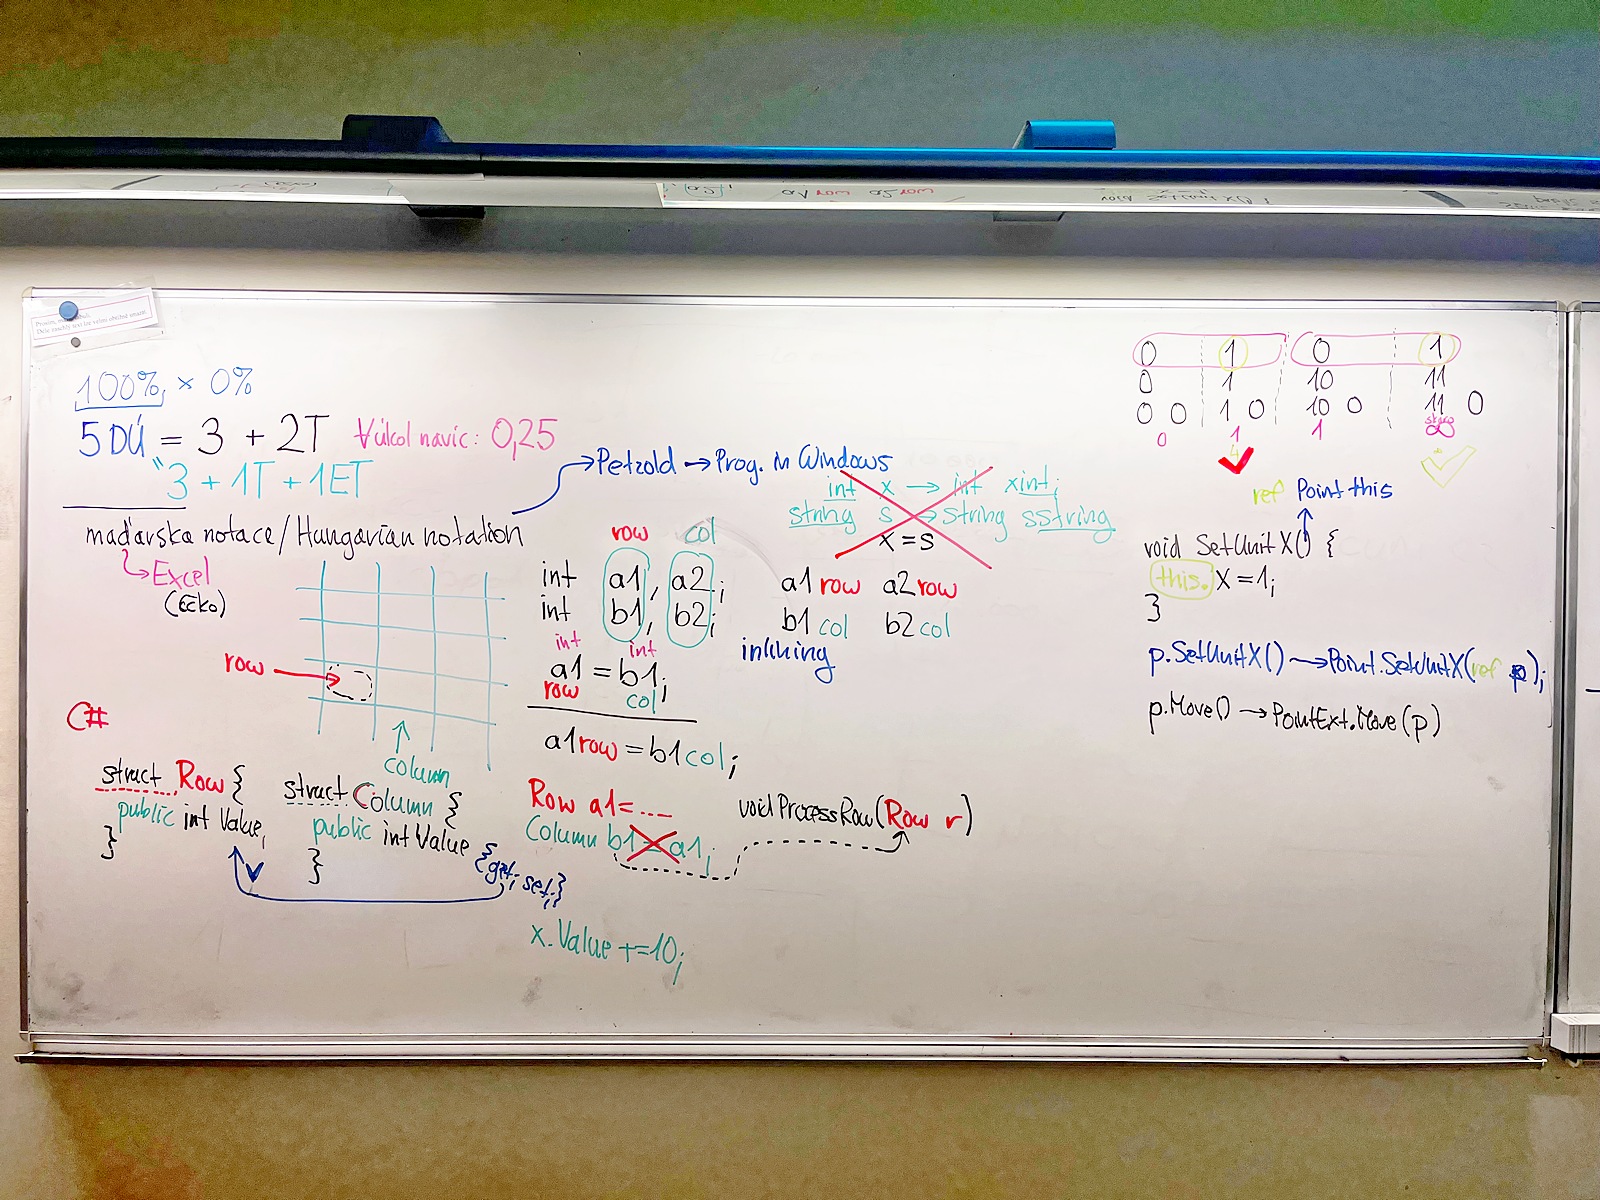 a1row a2row
void SetUnitX() {
100% × 0%
5DÚ = 3 + 2T
Úkol navíc: 0,25
3 + 1T + 1ET
maďarska notace / Hungarian notation
→ Petzold → Prog. in Windows
→ Excel
(Éčko)
row
column
row col
int a1, a2;
int b1, b2;
int int
a1 = b1;
row col
a1row = b1col;
int x → int xint;
string s → string sstring
x = s
a1row a2row
b1col b2col
inlining
C#
struct Row {
public int Value;
}
struct Column {
public int Value {get; set;}
}
Row a1 = ....
Column b1 = a1;
void ProcessRow(Row r)
x.Value += 10;
0 1 0 1
0 1 10 11
0 0 1 0 10 0 11 0
0 1 1
ref Point this
void SetUnitX() {
this. X = 1;
}
p.SetUnitX() → Point.SetUnitX(ref p);
p.Move() → PointExt.Move(p)